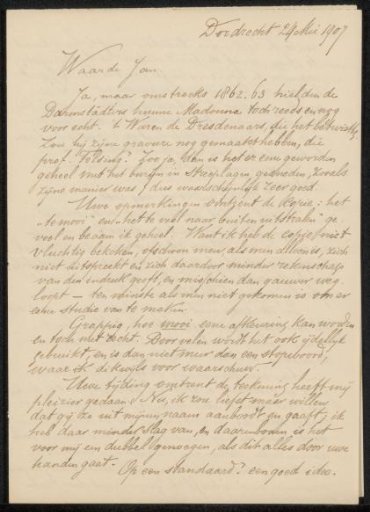 Dordrecht 29 Mei 1907
Waarde Jan,
Ja, maar omstreeks 1862.63 hielden de
Darmstadters hunne Madonna toch reeds en nog
voor echt. 't Waren de Dresdenaars, die het betwistten
Zou hij zijne gravure nog gemaakt hebben, die
prof. Felsing? Zoo ja, dan is het er eene geworden
geheel met het burijn in streeplagen, gebreden, zooals
zijne manier was, dus waarschijnlijk zeer goed.
Uwe opmerkingen omtrent de kopie: het
"te mooi" en "het te veel naar buiten uitstralen" ge
veel en beaam ik geheel. Want ik heb de copie niet
vluchtig bekeken, ofschoon men, als men alleen is, zich
niet uitspreekt en zich daardoor minder rekenschap
van den indruk geeft, en misschien dan gauwer weg
loopt — ten minste als men niet gekomen is om er
eene studie van te maken.
Grappig, hoe mooi eene afkeuring kan worden
en toch niet echt. Door velen wordt het ook ijdellijk
gebruikt, en is dan niet meer dan een stopwoord,
waar ik dikwijls voor waarschuw.
Uwe tijding omtrent de teekening heeft mij
pleizier gedaan. Nu, ik zou liefst maar willen
dat gij ze uit mijnen naam aanboodt en gaaft; ik
heb daar minder slag van, en daarenboven is het
voor mij een dubbel genoegen, als dit alles door uwe
handen gaat. Op een standaard? een goed idee.